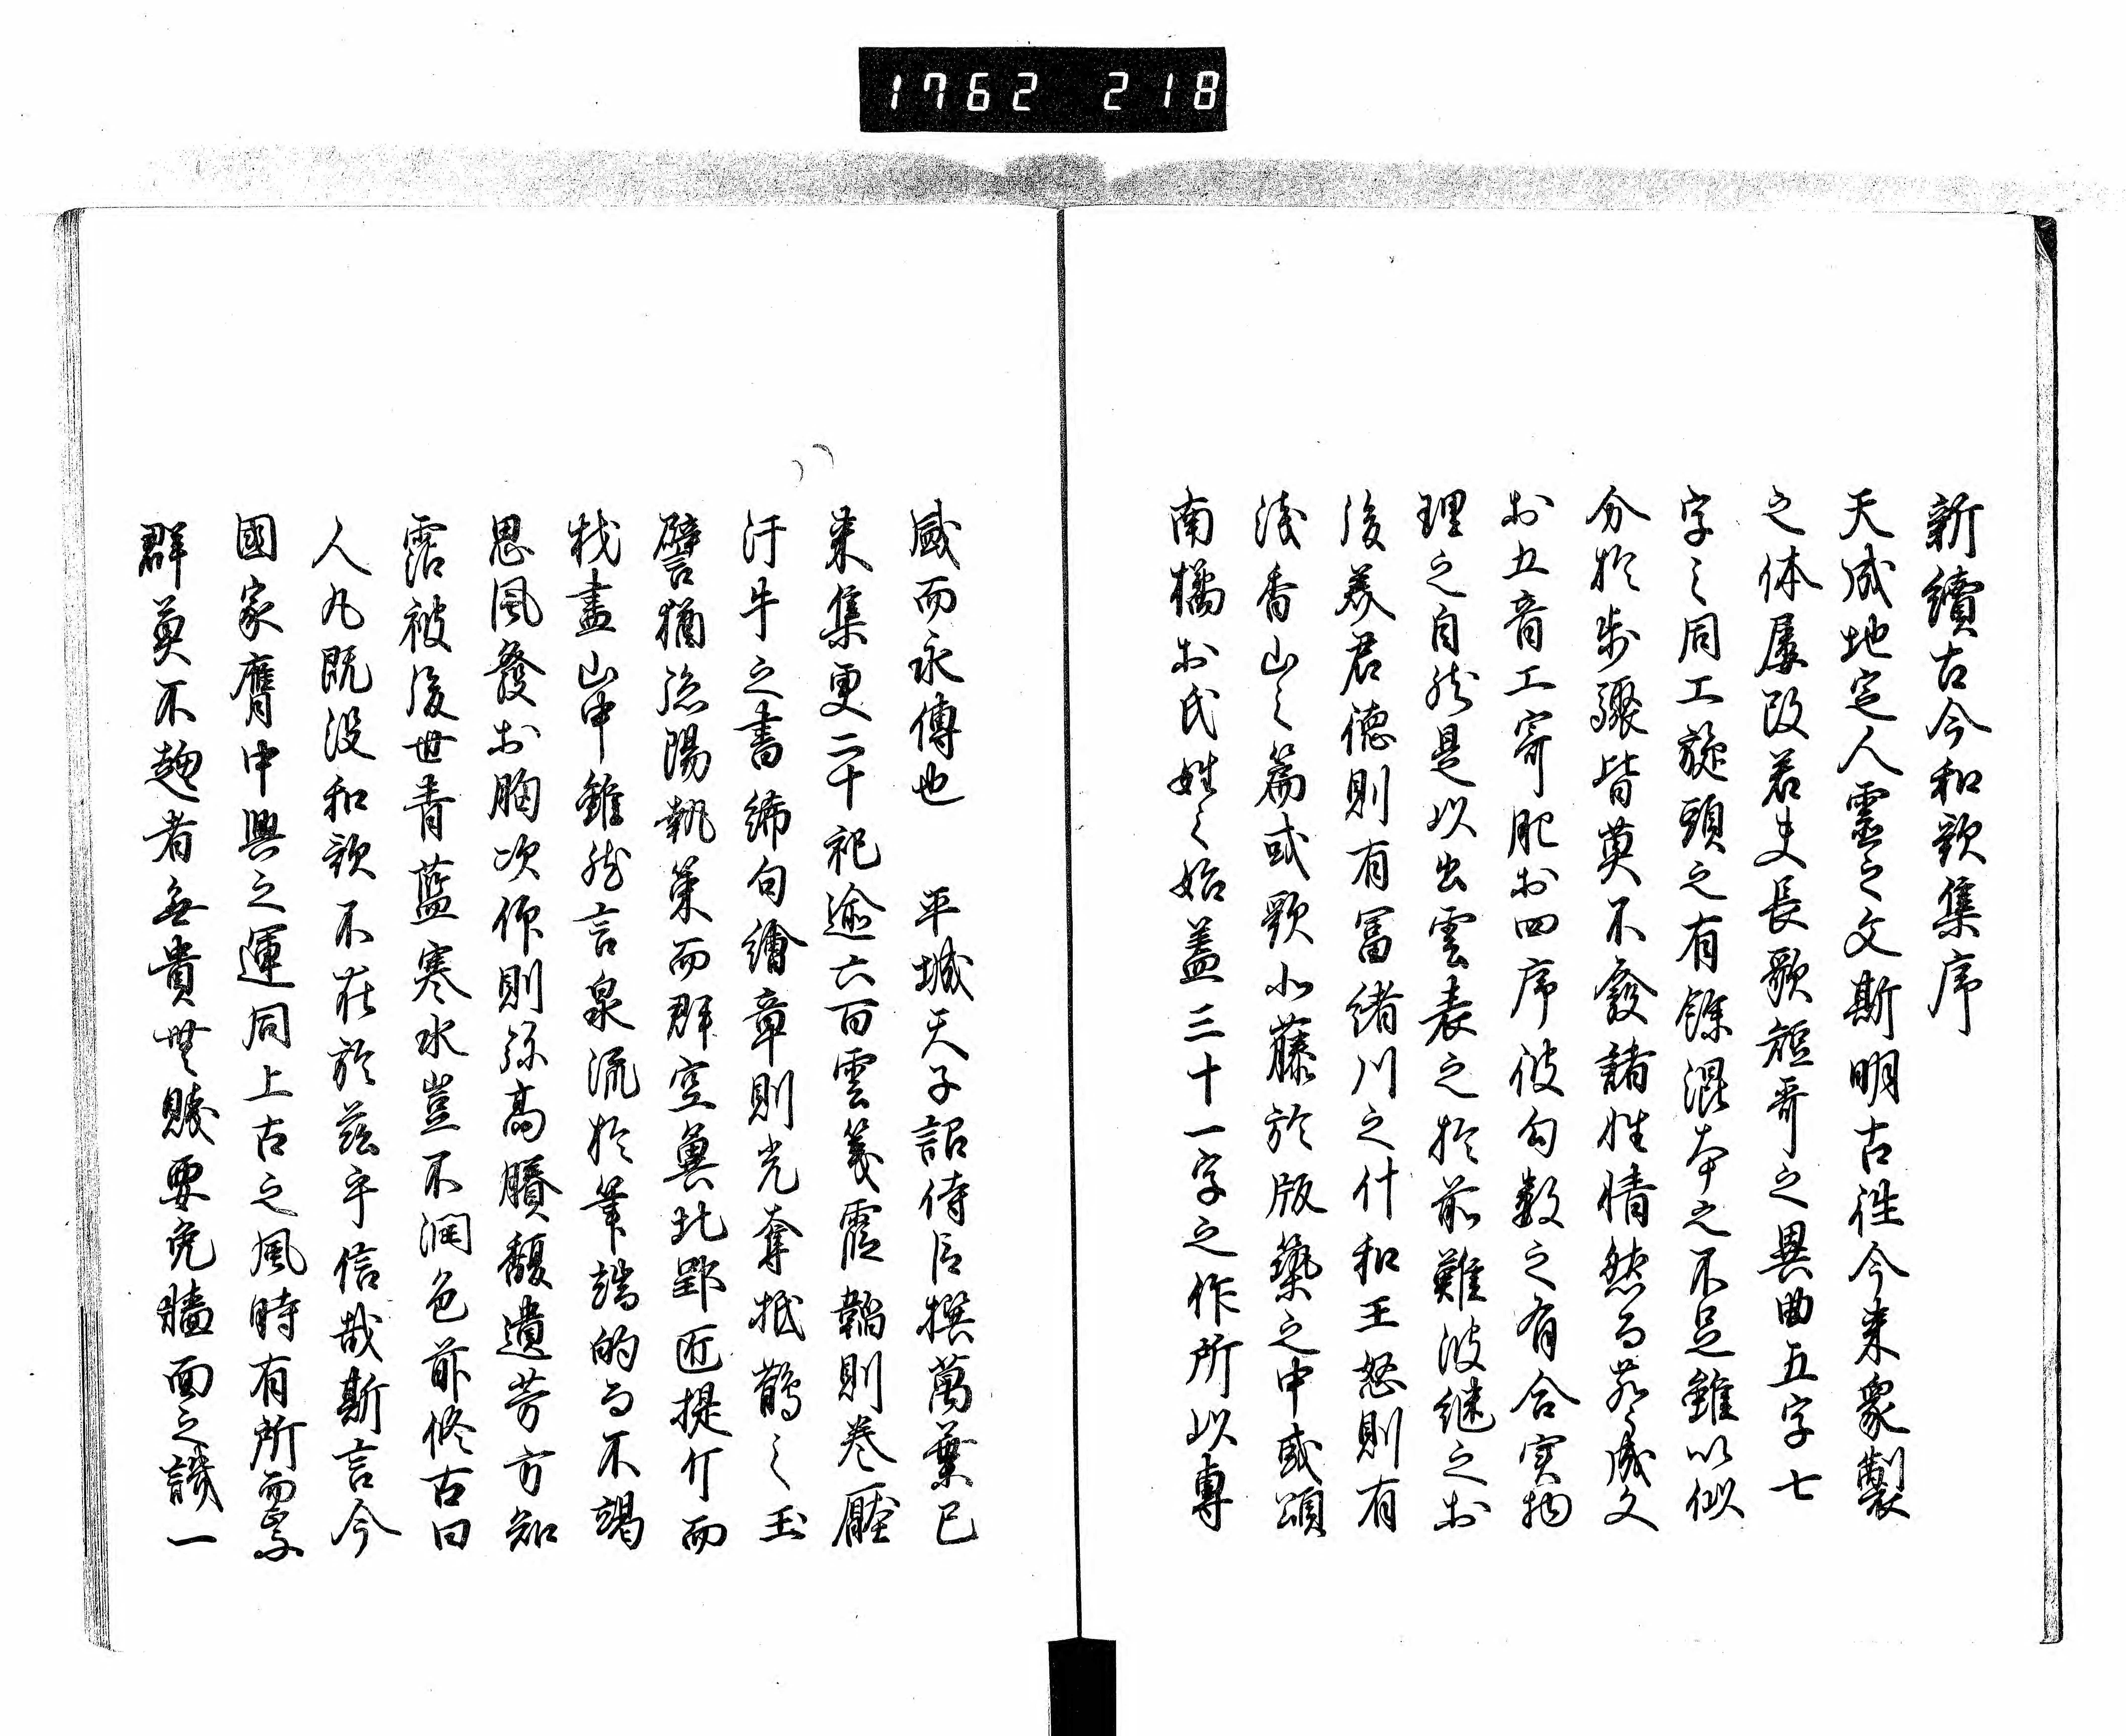 1762 218
新續古今和歌集序
天成地定人靈之文斯明古往今来象製
之体屢改若夫長歌短哥之異曲五字七
字之同工旋頭之有餘混本之不足雖以似
分於步驟皆莫不發諸性情然而聲成文
於五音工寄肥於四序彼勾數之有合実物
理之自然是以出雲表之於前難波継之於
後美君德則有冨緒川之什和王怒則有
浅香山之篇或歌小藤於版築之中或頌
南橘於氏姓之始蓋三十一字之作所以專
盛而永傳也　平城天子詔侍臣撰萬葉已
来集更二十祀逾六百雲箋霞韜則巻壓
汗牛之書絺句繪章則光奪抵鵲之玉
譬猶孫陽執策而群空冀北郢匠提斤而
材盡山中雖然言泉流於筆端的而不竭
思風發於胸次仰則弥高賸馥遺芳方知
霑被後世青藍寒水豈不潤色前修古曰
人丸既没和歌不在於茲乎信哉斯言今
國家膺中興之運同上古之風時有所而需
群英不趨者無貴無賤要免牆面之譏一